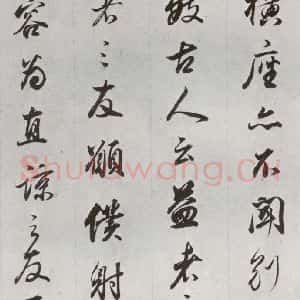 橫座亦不聞別
古人云益者
者三友願僕射
容為直諒之友
Shufawang.CN